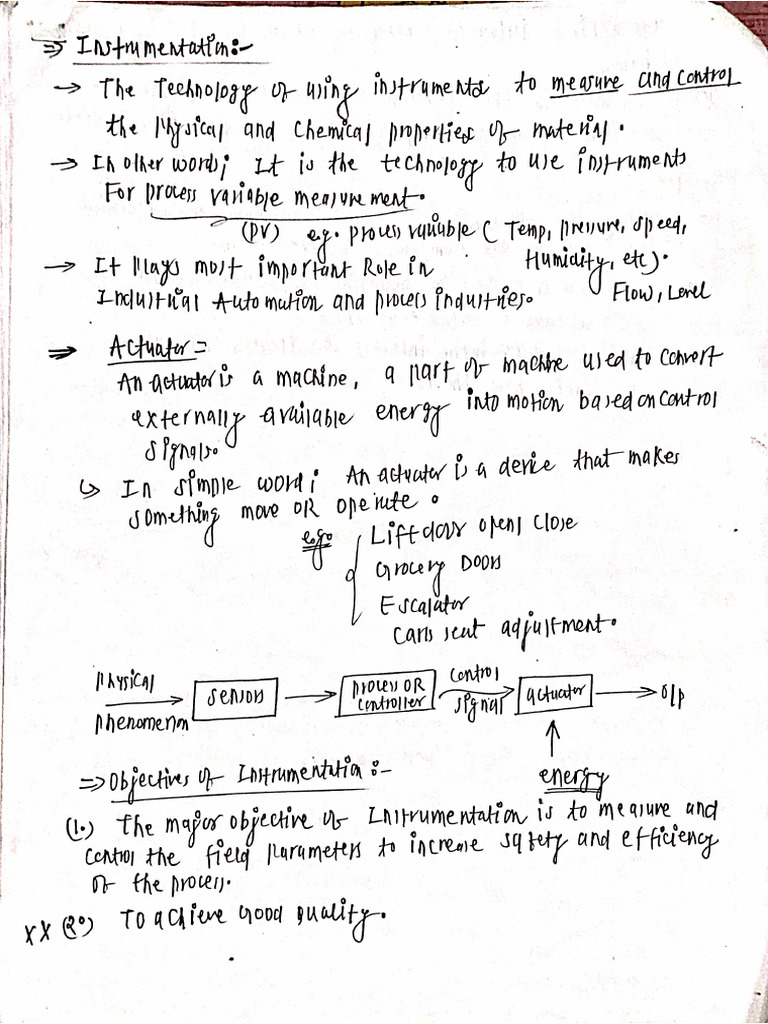 ⇒ Instrumentation:-
→ The Technology of using instruments to measure and control
the Physical and Chemical properties of material.
→ In other word; It is the technology to use instruments
For process variable measurement.
(PV) e.g. process variable ( Temp, pressure, speed,
Humidity, etc).
Flow, Level
→ It Plays most important Role in
Industrial Automation and process industries.
⇒ Actuator =
An actuator is a machine, a part of machine used to convert
externally available energy into motion based on control
signals.
↳ In simple word; An actuator is a device that makes
something move OR operate.
e.g. Lift door open/ close
Grocery Doors
Escalator
Cars seat adjustment.
Physical
Phenomenon
→ sensors → process OR
controller
control
signal
→ actuator → o/p
↑
energy
⇒ Objectives of Instrumentation :-
(1.) The major objective of Instrumentation is to measure and
control the field parameters to increase safety and efficiency
of the process.
XX (2.) To achieve Good quality.